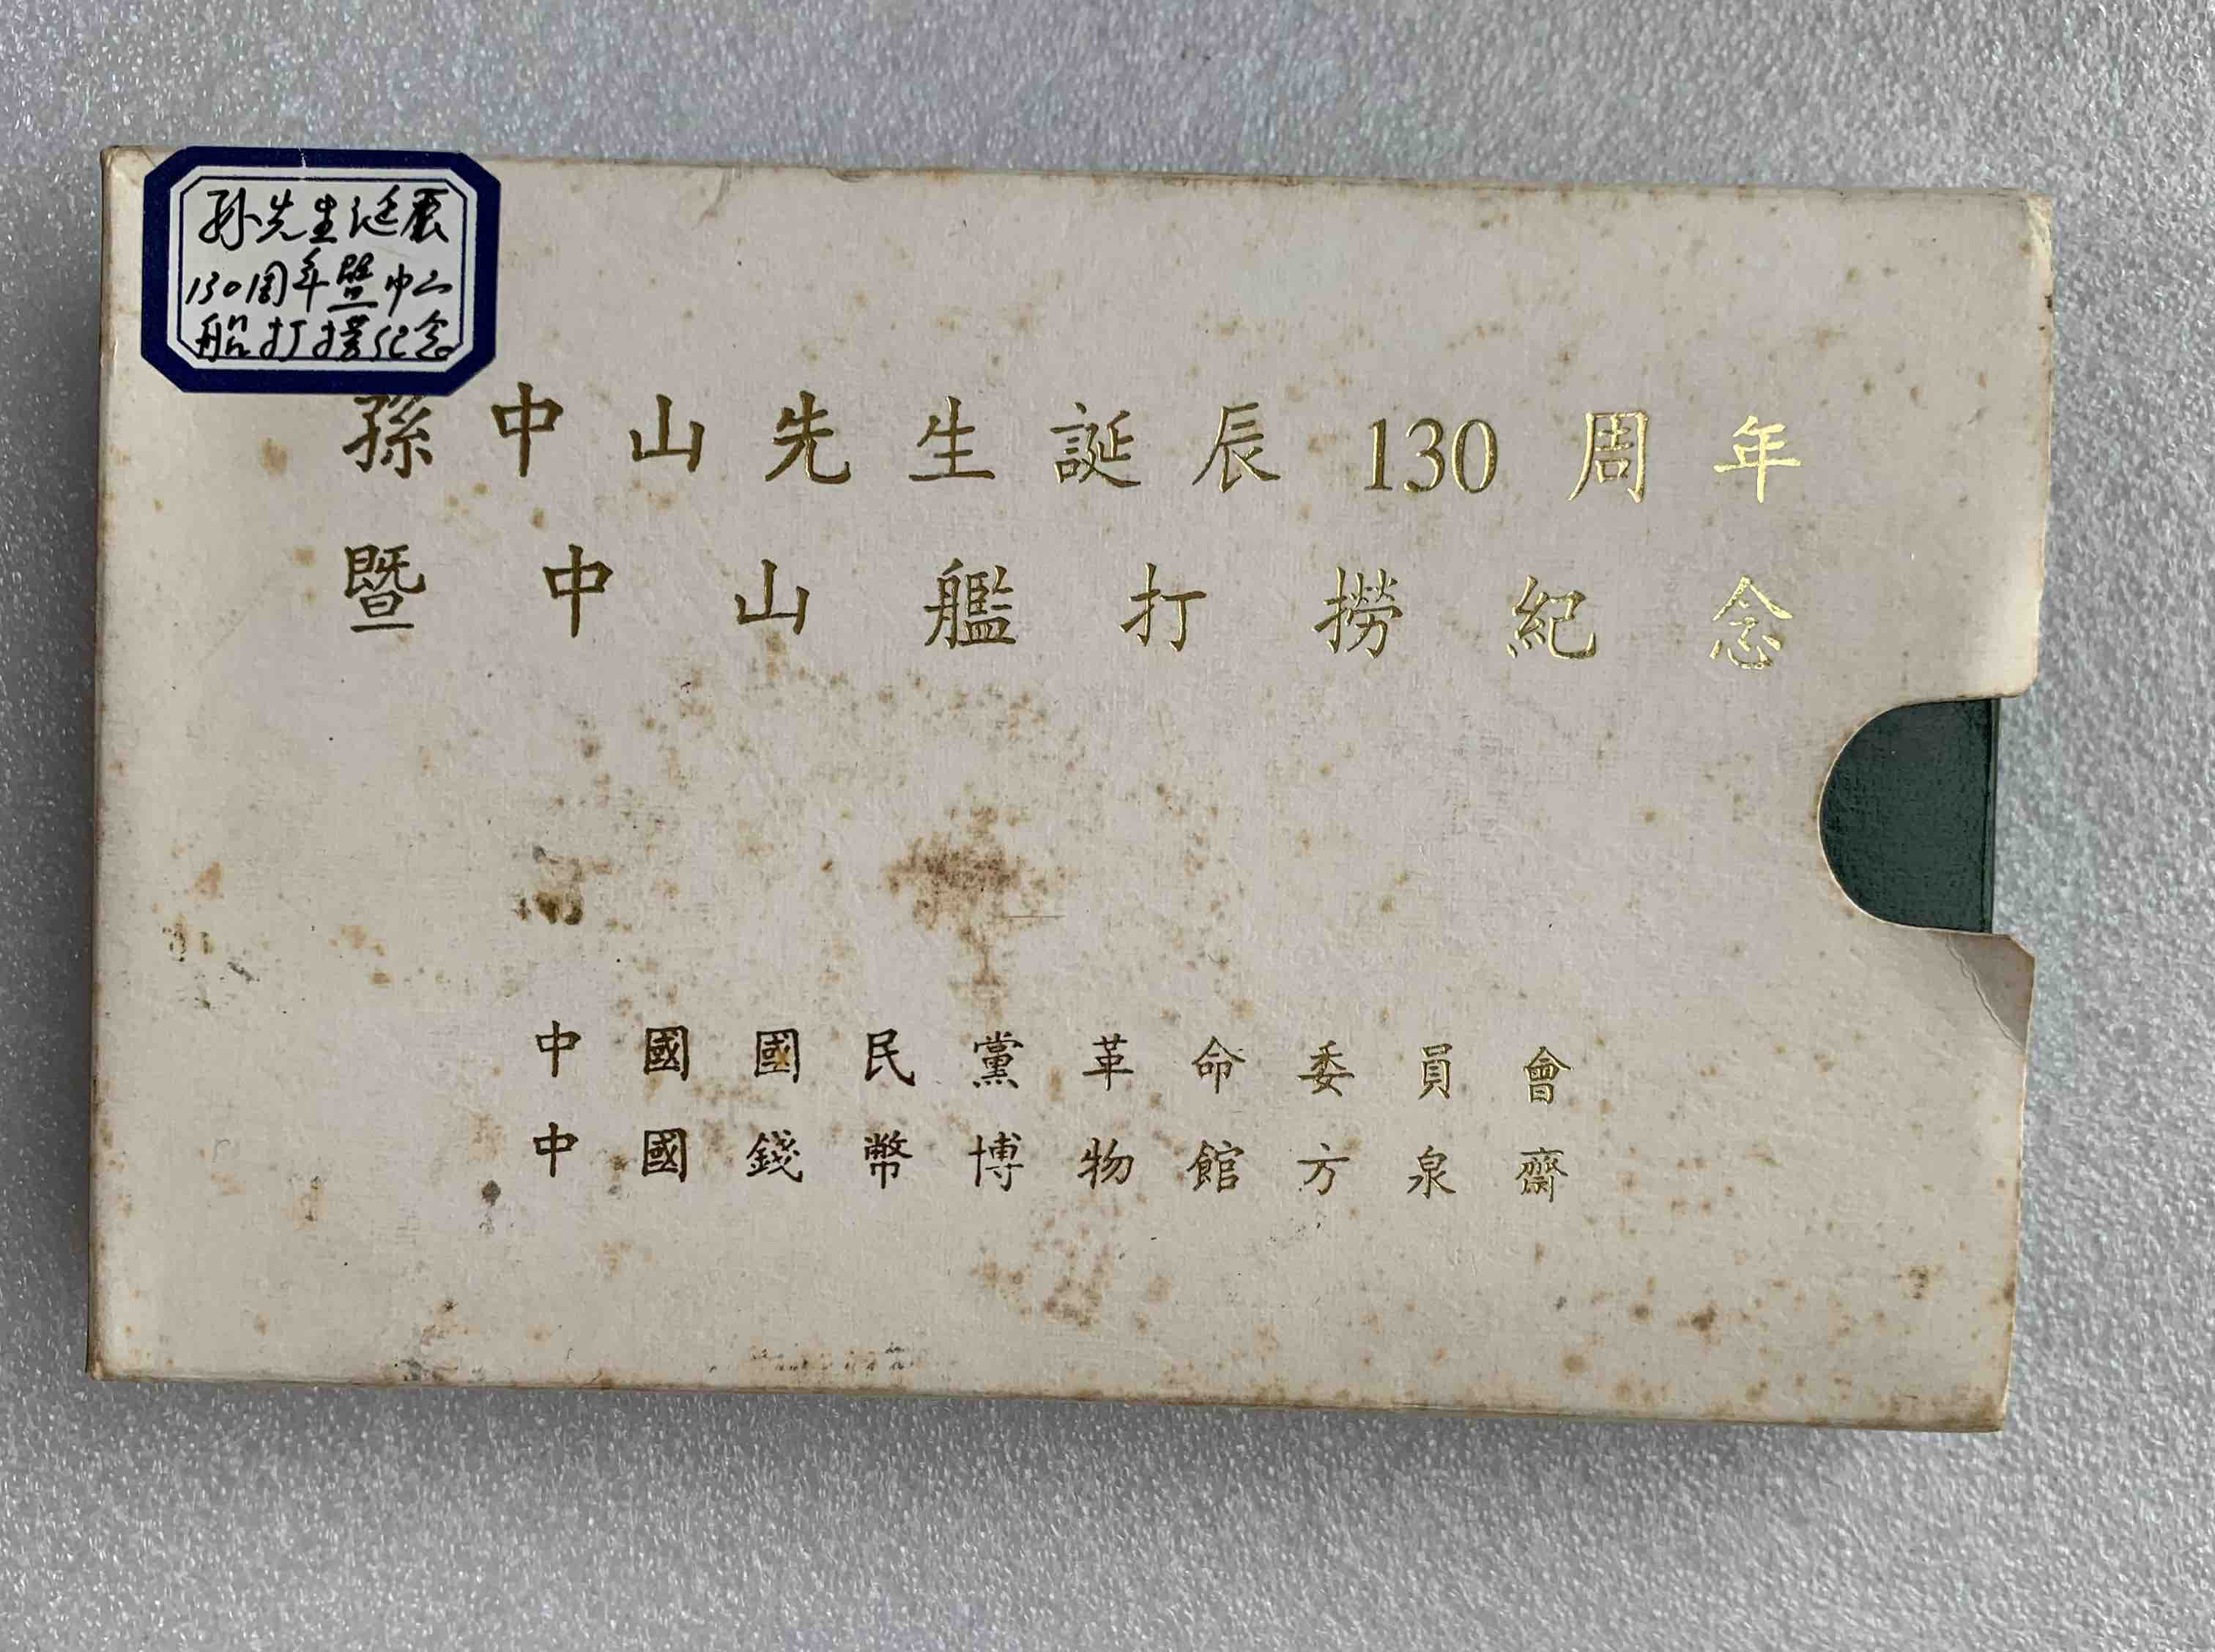 孙先生诞辰
130周年暨中山
船打捞纪念
孫中山先生誕辰130周年
暨中山艦打撈紀念
中國國民黨革命委員會
中國錢幣博物館方泉齋